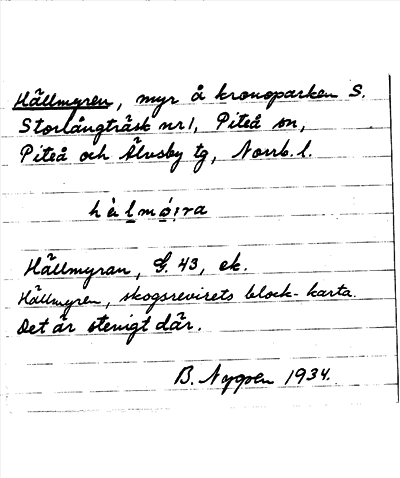 Hällmyren, myr å kronoparken S.
Storlångträsk nr 1, Piteå sn,
Piteå och Älvsby tg, Norrb. l.
hàlmøi̯ra
Hällmyran, G. 43, ek.
Hällmyren, skogsrevirets block-karta.
Det är stenigt där.
B. Nygren 1934.